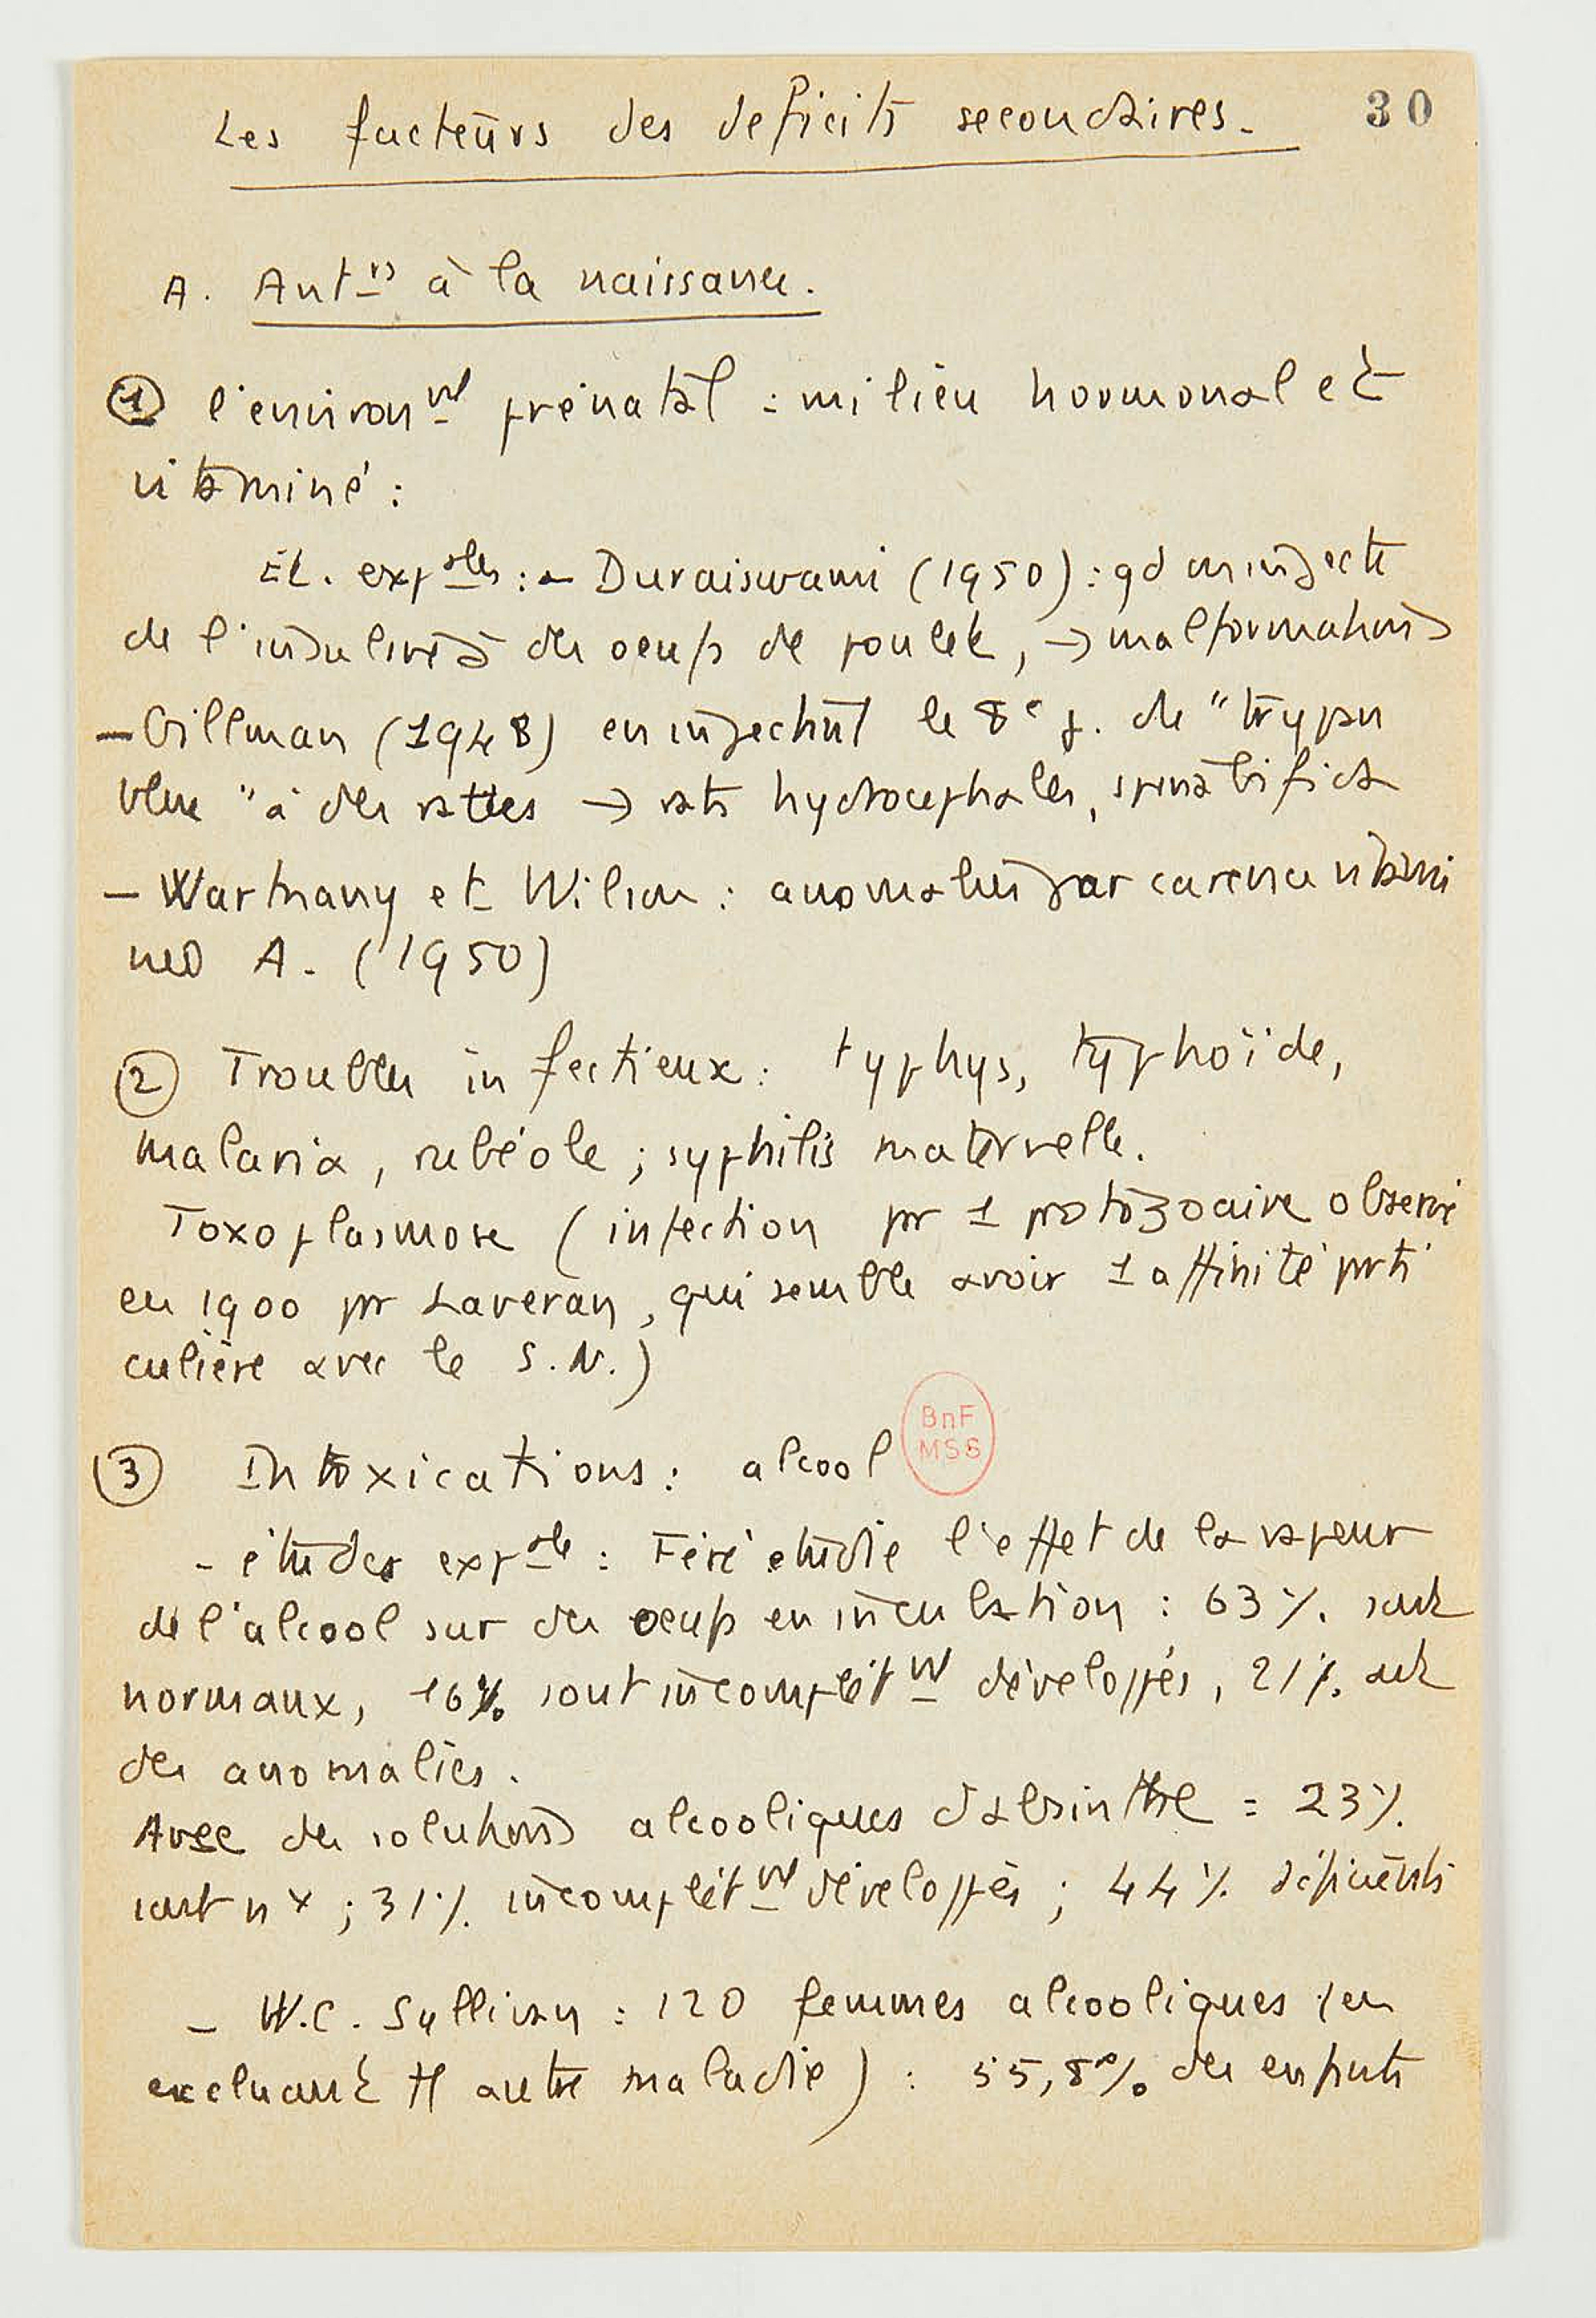 Les facteurs des deficits secondaires.
30
A. Antrs à la naissance.
① l'environnt prénatal : milieu hormonal et
vitaminé :
Et. exptales : - Duraiswami (1950) : qd on injecte
de l'insuline à des oeufs de poulet, → malformations
- Gillman (1948) en injectant le 8e j. de "trypan
blue" à des rattes → rats hydrocephales, spina bifida
- Warkany et Wilson : anomalies par carence vitami
nes A. (1950)
② Troubles infectieux : typhys, typhoïde,
malaria, rubéole ; syphilis maternelle.
Toxoplasmose (infection pr 1 protozoaire observé
en 1900 pr Laveran, qui semble avoir 1 affinité parti
culière avec le S.N.)
③ Intoxications : alcool
BnF
MSS
- études exptale : Féré étudie l'effet de la vapeur
de l'alcool sur des oeufs en incubation : 63 % sont
normaux, 16 % sont incomplètt développés, 21 % ont
des anomalies.
Avec des solutions alcooliques d'absinthe = 23 %
sont nx ; 31 % incomplètt développés ; 44 % déficients
- W.C. Sullivan : 120 femmes alcooliques (en
excluant tt autre maladie) : 55,8 % des enfants